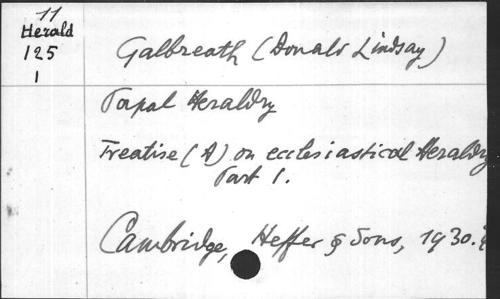 11
Herald
125
1
Galbreath (Donald Lindsay)
Papal Heraldry
Treatise (A) on ecclesiastical Heraldry
Part 1.
Cambridge, Heffer & Sons, 1930.